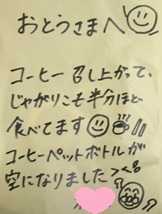 おとうさまへ
コーヒー召し上がって、
じゃがりこ半分ほど
食べてます
コーヒーペットボトルが
空になりました